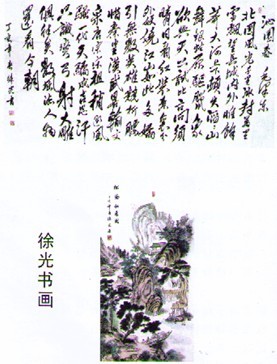 沁园春 毛泽东
北国风光千里冰封万里
雪飘望长城内外惟馀莽
莽大河上下顿失滔滔山
舞银蛇原驰蜡象欲与
天公试比高须晴
日看红装素裹分
外妖娆江山如此多娇
引无数英雄竞折腰
惜秦皇汉武略输文
采唐宗宋祖稍逊风
骚一代天骄成吉思汗
只识弯弓射大雕
俱往矣数风流人物
还看今朝
徐光书画